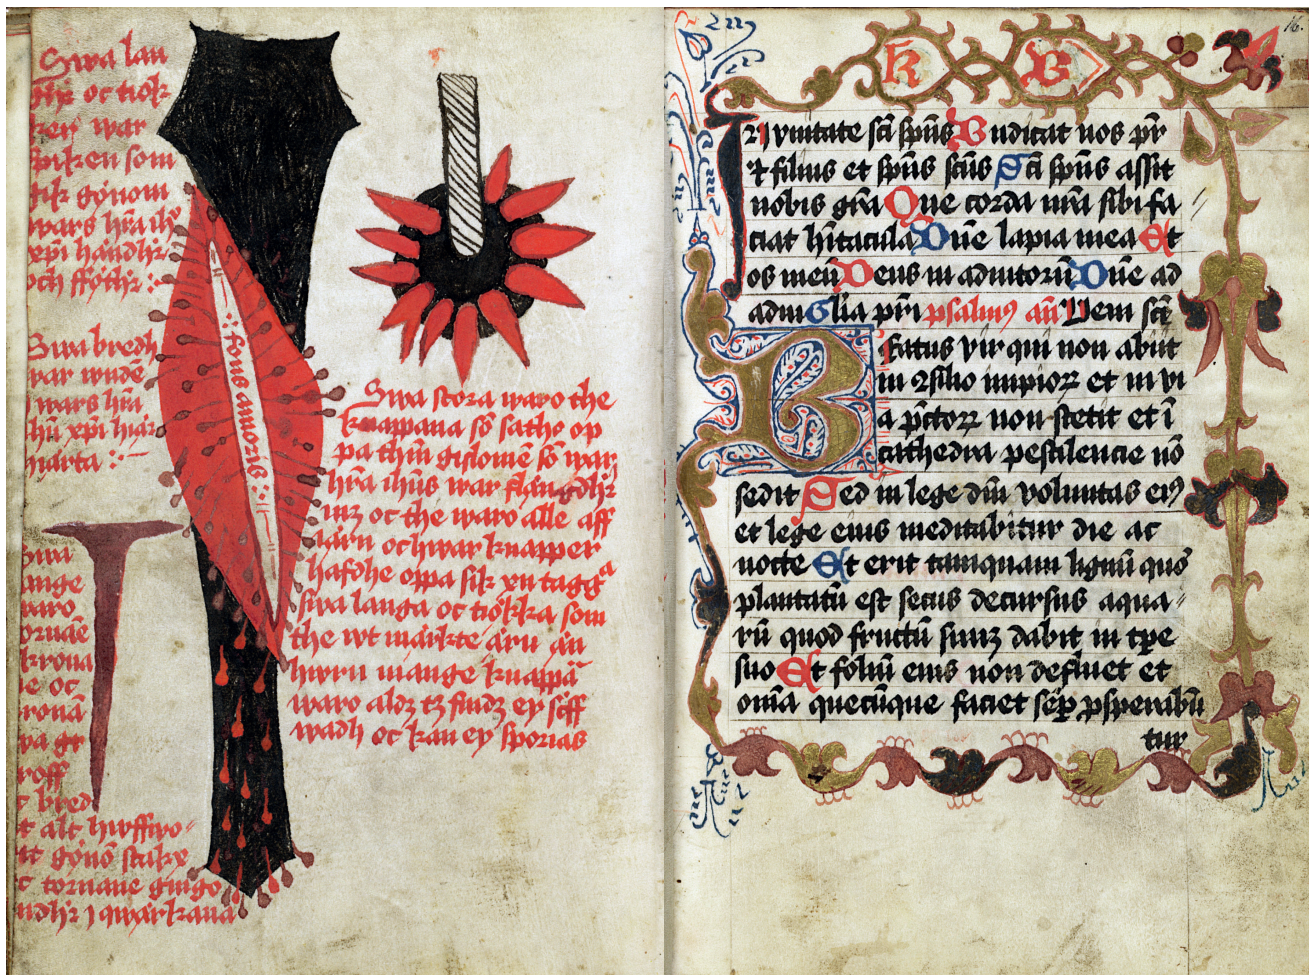 Swa lan
oc tiok
war
spiken som
gik gönom
wars hr̄a ih̄u
xp̄i händhr̄
och ffýthr̄ :-
Swa bredh
war wnde
wars hr̄a
ih̄u xp̄i hiär
hiärta :-
fons amoris
Swa stora waro the
knappana so̅ sathe op
pa thm̄ gislome̅ so̅ war
hr̄a ih̄us war flängdhr̄
mz oc the waro alle aff
iärn och war knapper
hafdhe oppa sik xn tagga
swa langa oc tiokka som
the wt märkte äru än
hwru mange knappa̅
waro aldz tz findz ey scriff
wadh oc kan ey sporias
Swa
lange
waro
tornae̅
krona
oc
krona̅
wa
groff
bred
alt hwffwo-
göno̅ stake
tornane gingo
j qwärkana
16.
k B
In vnitate sc̄i sp̄us Bndicat uos pr̄
⁊ filius et sp̄us sc̄us Sc̄i sp̄us assit
nobis gr̄a Que corda nr̄a sibi fa
ciat hītacula Dn̄e lapia mea Et
os meū Deus in adiutoriū Dn̄e ad
adiu Glia pr̄i psalmꝰ an̄ Veni sc̄e
Beatus vir qui non abiit
in ꝯsilio impioꝝ et in vi
a pc̄toꝝ non stetit et ī
cathedra pestilencie nō
sedit Sed in lege dn̄i voluntas eiꝰ
et lege eius meditabitur die ac
nocte Et erit tamquam lignū quo
plantatū est secus decursus aqua-
rū quod fructū suuꝫ dabit in tp̄e
suo Et foliū eius non defluet et
om̄ia quecūque faciet sēp ꝓsperabū
tur